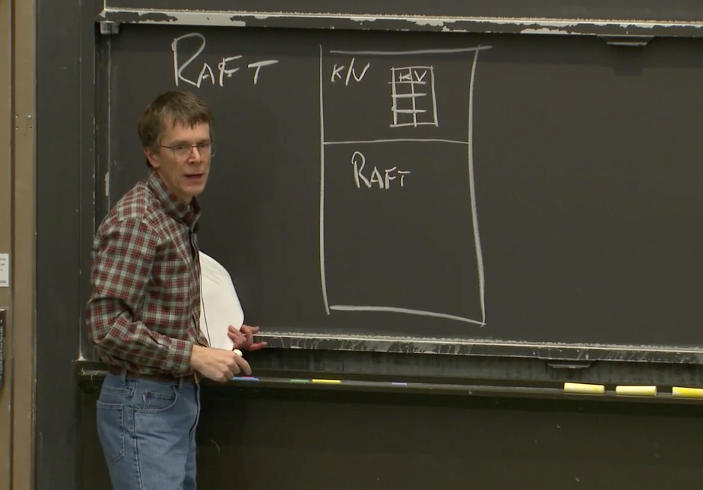 RAFT
K/V
K V
RAFT